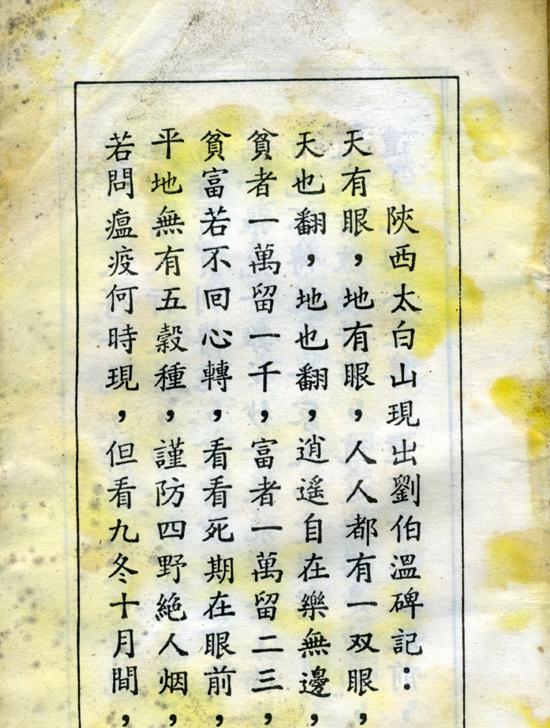 陝西太白山現出劉伯溫碑記：
天有眼，地有眼，人人都有一双眼，
天也翻，地也翻，逍遥自在樂無邊，
貧者一萬留一千，富者一萬留二三，
貧富若不回心轉，看看死期在眼前，
平地無有五穀種，謹防四野絕人烟，
若問瘟疫何時現，但看九冬十月間，